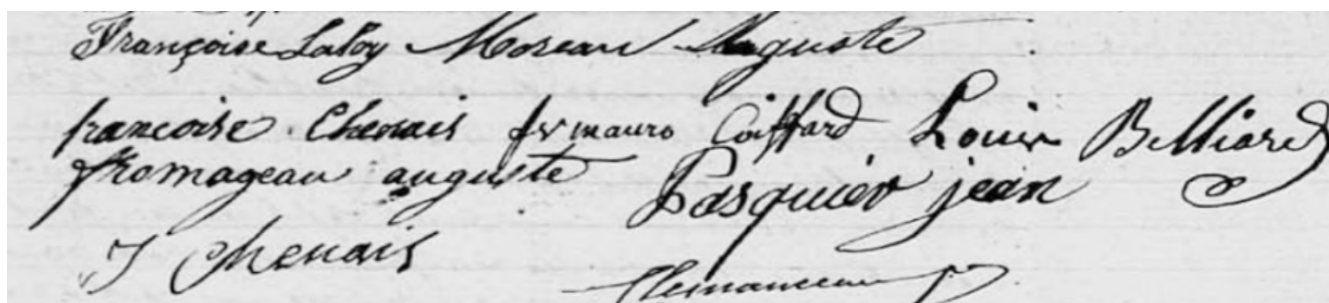 Françoise Laloy Moreau Auguste
francoise Chenais Coiffard Louis Belliard
fromageau auguste Pasquier jean
J Chenais
Clemanceau